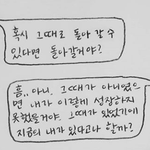 혹시 그때로 돌아 갈 수
있다면 돌아갈거야?
흠.. 아니. 그때가 아니였으
면 내가 이렇게 성장하지
못했을거야. 그때가 있었기에
지금의 내가 있다고나 할까?